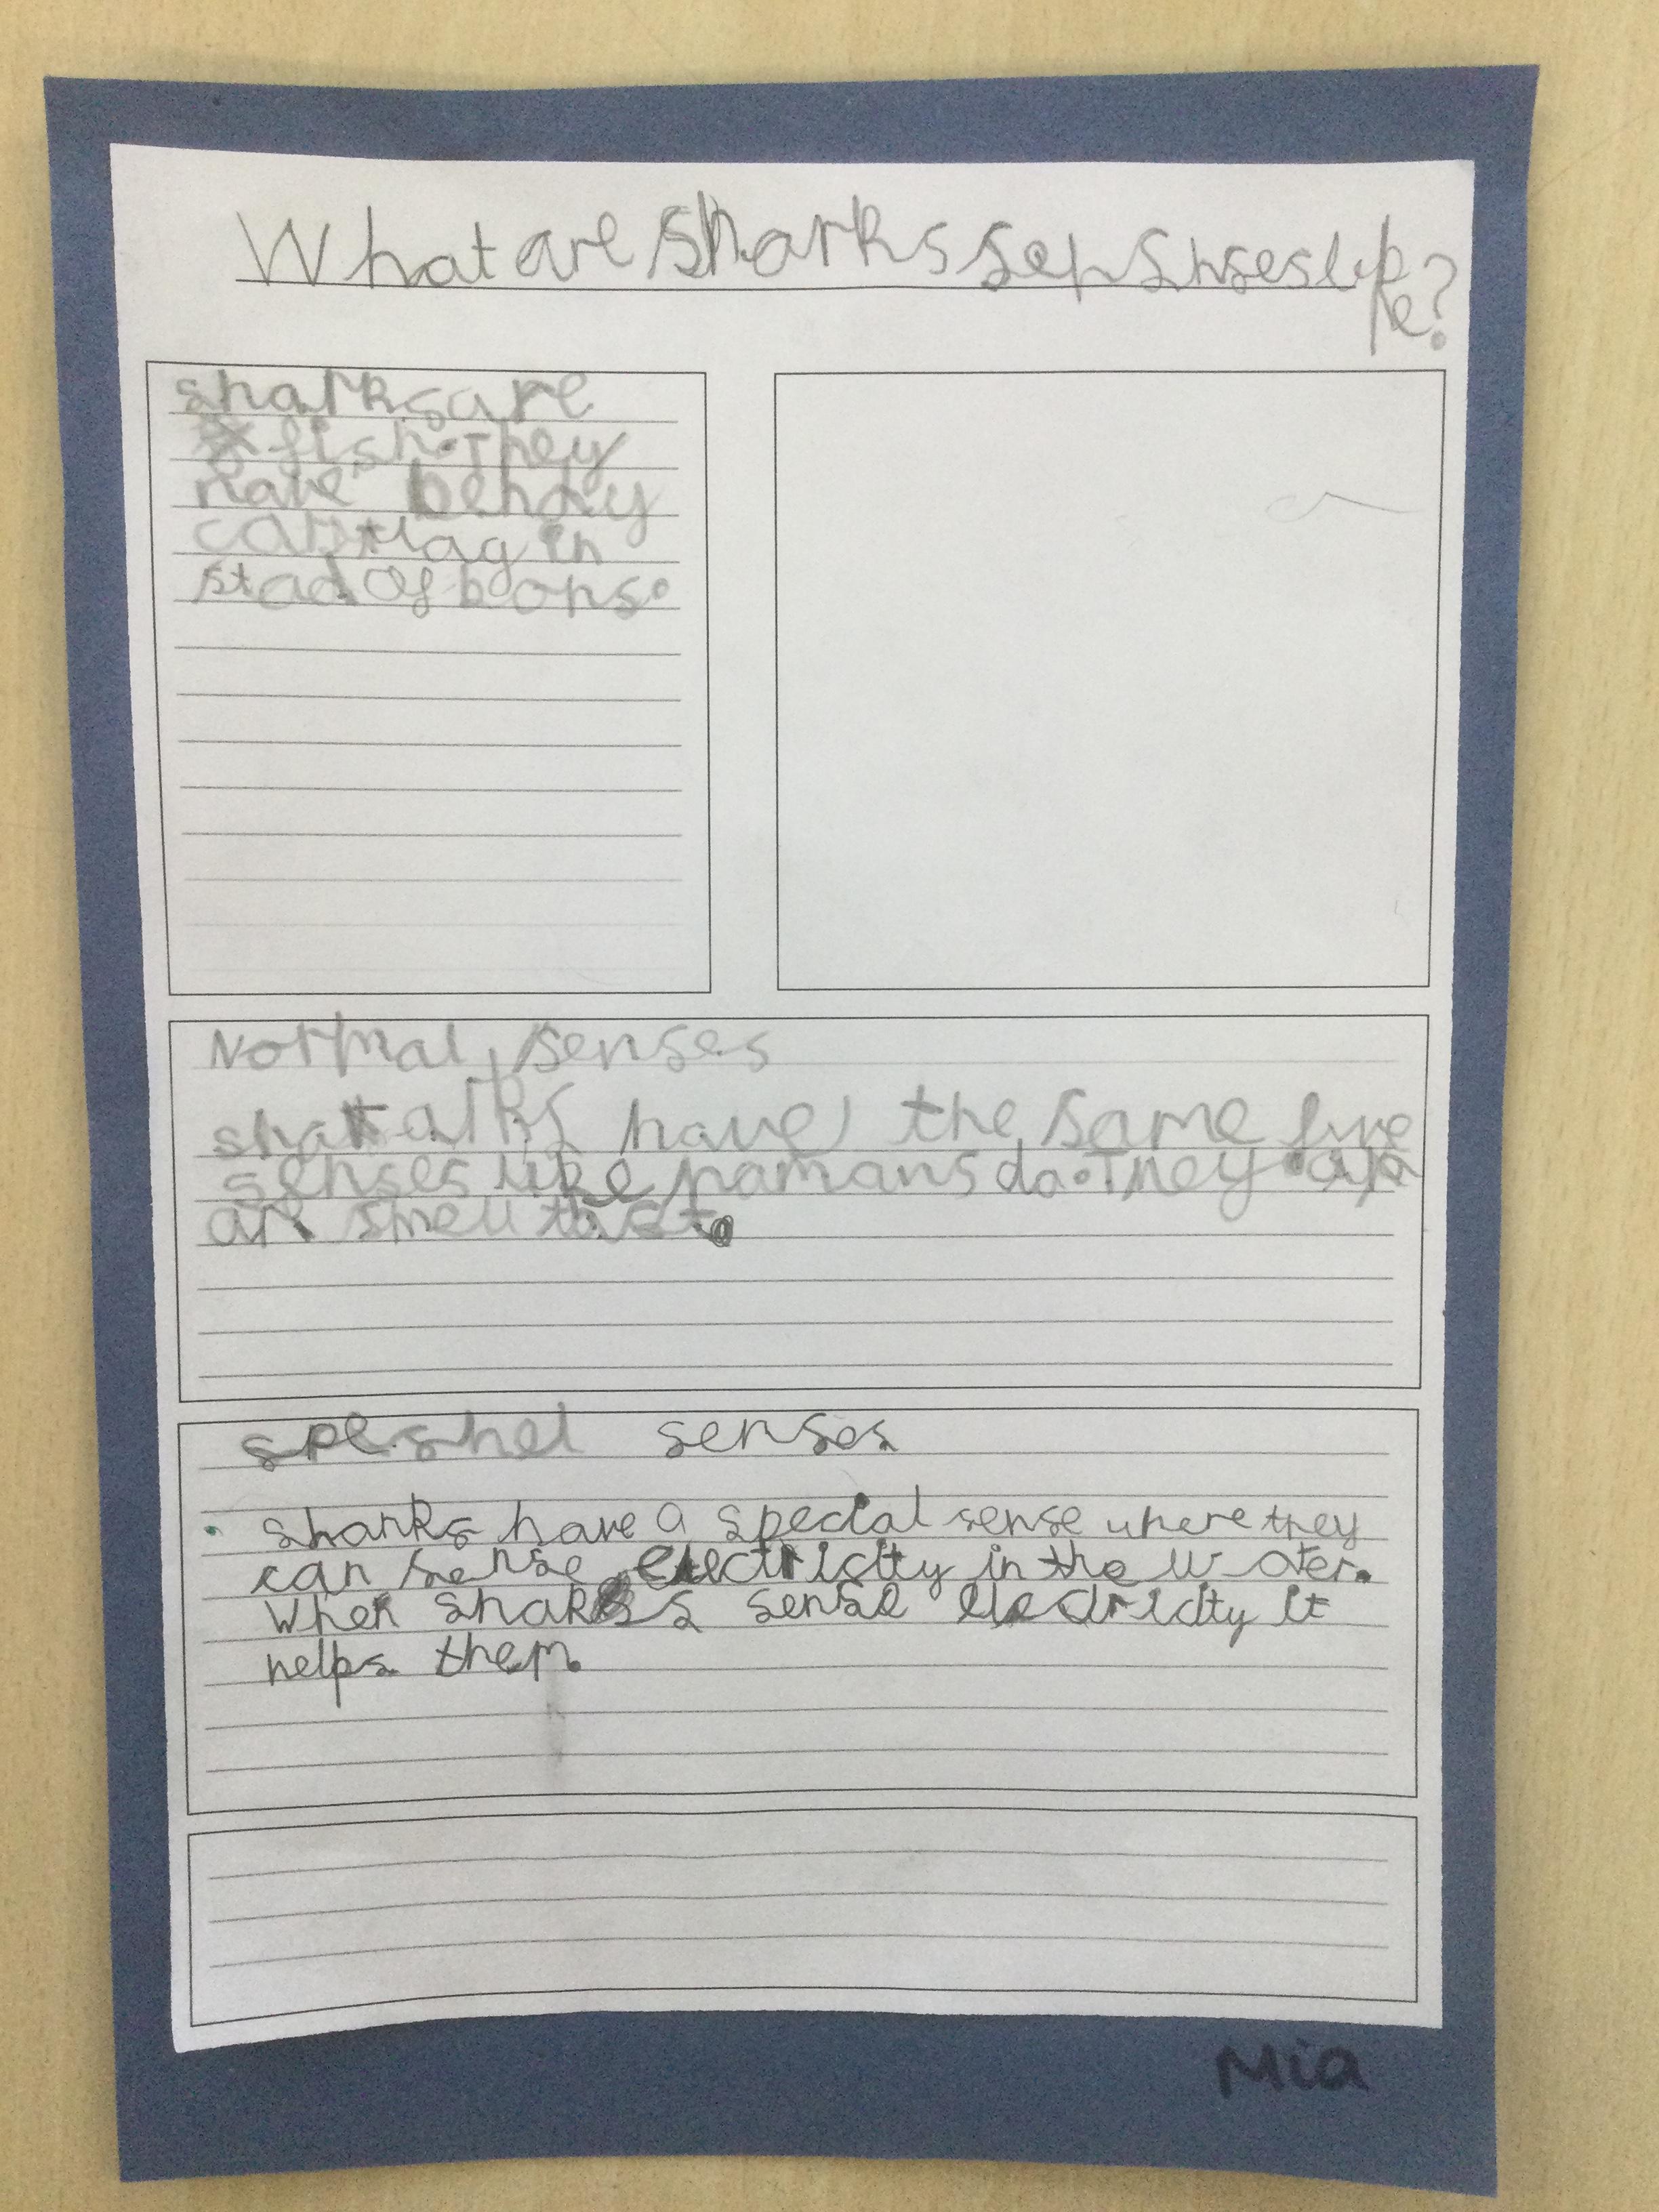 What are sharks senseslike?
sharks are
fish. They
have bendy
cartilag in
stad of bons.
Normal senses
sharks have the same five
senses like hamans do. They
smell that.
speshel senses
sharks have a special sense where they
can sense electricity in the water.
when sharks sense electricity it
helps them.
Mia